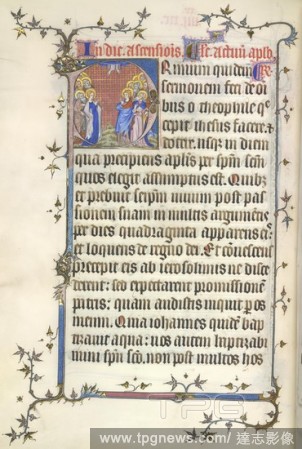 In die ascensiõis. Lc̃. actuũ aplõ.
Rimum quidem
sermonem feci de oĩ
bus o theophile q̃
cepit ihesus facere. ⁊
docere. usq̃ in diem
qua precipiens aplĩs per spm̃ scm̃
quos elegit assumptus est. Quibꝫ
et prebuit seipm̃ uiuum post pas
sionem suam in multis argumentis
per dies quadraginta apparens eis:
et loquens de regno dei. Et cõuescens
precepit eis ab ierosolimis ne disce
derent: sed expectarent promissionẽ
patris: quam audistis inquit per os
meum. Quia iohannes quidẽ bap
tizauit aqua: uos autem baptizabi
mini spũ scõ, non post multos hos
TPG
www.tpgnews.com/ 達志影像